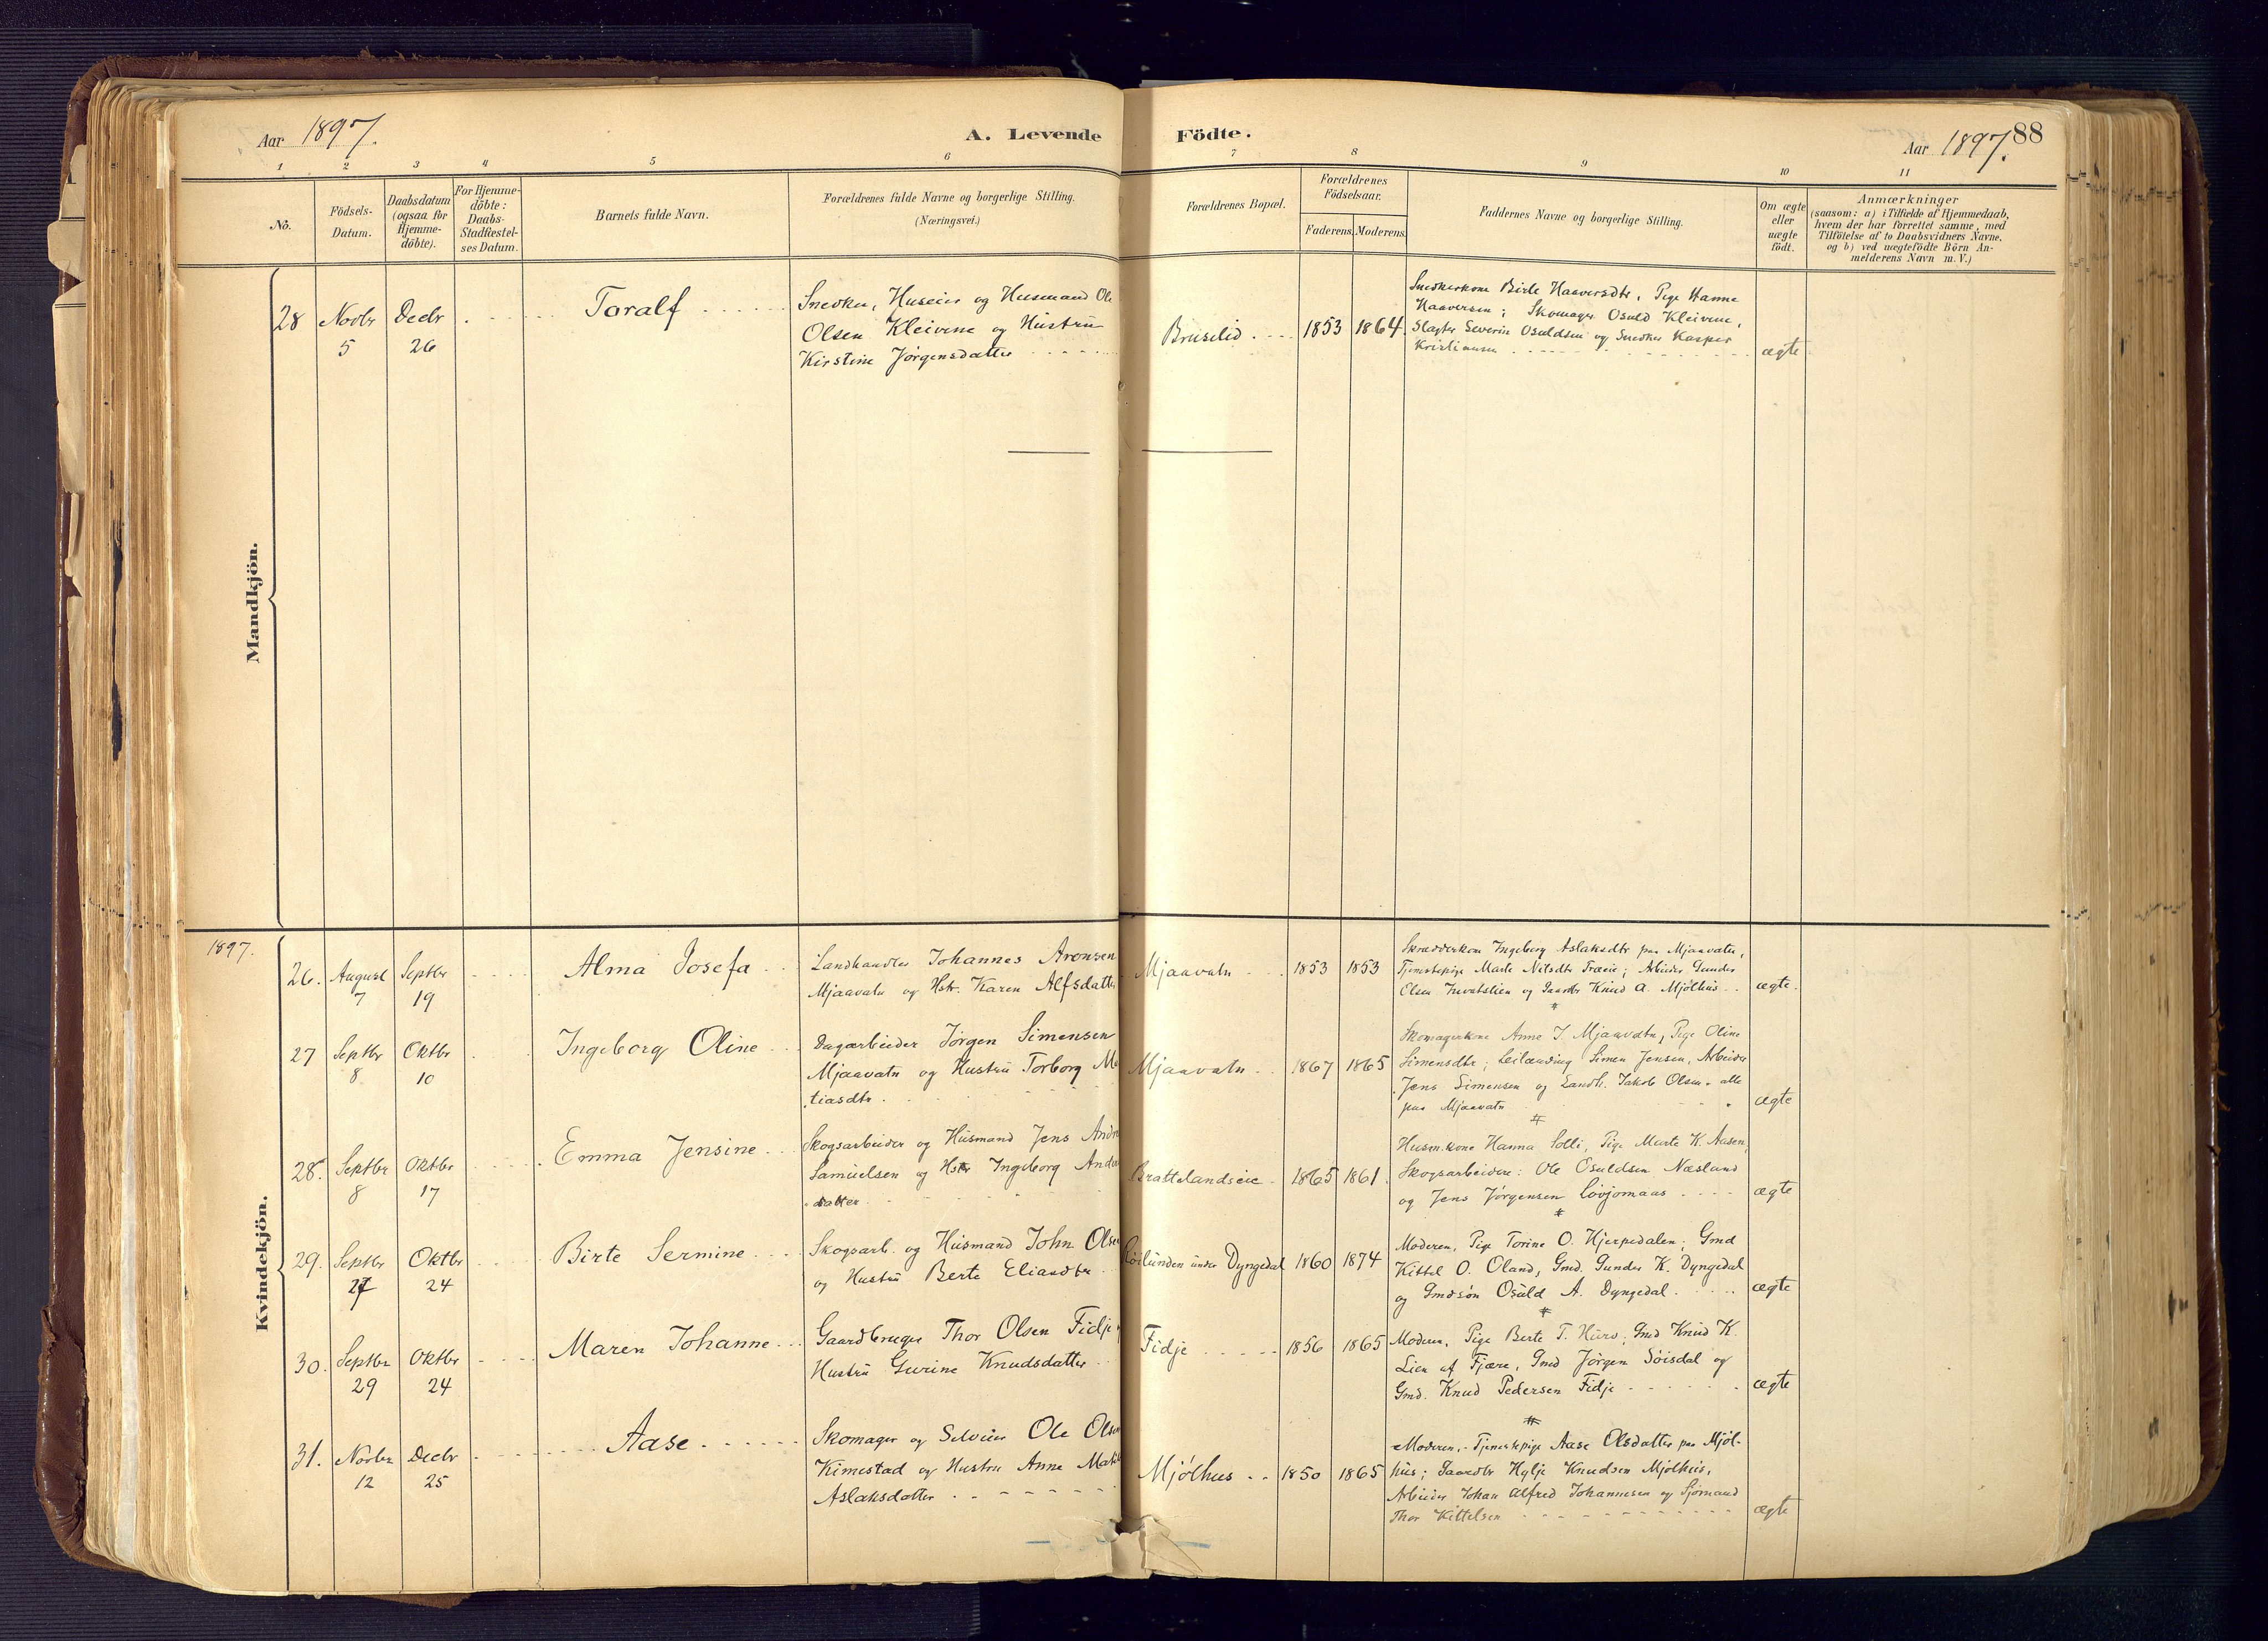 Aar 1897.
A. Levende Födte.
Aar 1897. 88
1 2 3 4 5 6 7 8 9 10 11
No.
Födsels-
Datum.
Daabsdatum
(ogsaa for
Hjemme-
döbte).
For Hjemme-
döbte:
Daabs-
Stadfæstel-
ses Datum.
Barnets fulde Navn.
Forældrenes fulde Navne og borgerlige Stilling.
(Næringsvei.)
Forældrenes Bopæl.
Forældrenes
Födselsaar.
Faderens. Moderens.
Faddernes Navne og borgerlige Stilling.
Om ægte
eller
uægte
födt.
Anmærkninger
(saasom: a) i Tilfælde af Hjemmedaab,
hvem der har forrettet samme, med
Tilföielse af to Daabsvidners Navne,
og b) ved uægtefödte Börn An-
melderens Navn m. V.)
Mandkjön.
28 Novbr 5 Decbr 26
Taralf
Snedker, Huseier og Husmand Ole
Olsen Kleivene og Hustru
Kirstine Jørgensdatter
1853 1864.
Snedkerkone Birte Haaversdtr, Pige Hanna
Haaversen; Skomager Osuld Kleivene,
Slagter Severin Osuldsen og Snedker Kasper
Kristiansen
ægte
1897.
Kvindekjön.
26. August 7 Septbr 19
Alma Josefa
Landhandler Johannes Aronsen
Mjaavatn og Hstr. Karen Alfsdatter
Mjaavatn
1853 1853
Skrædderkone Ingeborg Aslaksdtr paa Mjaavatn,
Tjenestepige Marte Nilsdtr Træeie; Arbeider Gunder
Olsen og Gaardbr Knud A. Mjølhus
ægte.
27 Septbr 8 Oktbr 10
Ingeborg Oline
Dagarbeider Jörgen Simensen
Mjaavatn og Hustru Torborg Ma
tiasdtr.
Mjaavatn
1867 1865
Skomagerkone Anne J. Mjaavatn, Pige Oline
Simensdtr; Leilænding Simen Jensen, Arbeider
Jens Simensen og Landh. Jakob Olsen, alle
paa Mjaavatn
ægte
28. Septbr 8 Oktbr 17
Emma Jensine
Skogsarbeider og Husmand Jens Andr
Samuelsen og Hstr Ingeborg Anders
datter
Brattelandseie
1865 1861
Husm.kone Hanna Solli, Pige Marte K. Aasen,
Skogsarbeidere: Ole Osuldsen Næsland
og Jens Jørgensen Løvjomaas
ægte
29. Septbr 27 Oktbr 24
Birte Sermine
Skogsarb. og Husmand John Olsen
og Hustru Berte Eliasdtr
under Dyngedal
1860 1874
Moderen, Pige Torine O. Hjerpedalen; Gmd
Kittel O. Oland, Gmd. Gunder K. Dyngedal
og Gmdsön Osuld A. Dyngedal.
ægte
30. Septbr 29 Oktbr 24
Maren Johanne
Gaardbruger Thor Olsen Fidje
Hustru Gurine Knudsdatter
Fidje
1856 1865
Moderen, Pige Berte T. Hurv; Gmd Knud K.
Lien af Fjære, Gmd Jörgen Söisdal og
Gmd. Knud Pedersen Fidje
ægte
31. Novbr 12 Decbr 25
Aase
Skomager og Selveier Ole Olsen
Kimestad og Hustru Anne
Aslaksdatter
Mjölhus
1850 1865
Moderen, Tjenestepige Aase Olsdatter paa Mjöl-
hus; Gaardbr Hylje Knudsen Mjölhus,
Arbeider Johan Alfred Johannesen og Sjömand
Thor Kittelsen
ægte